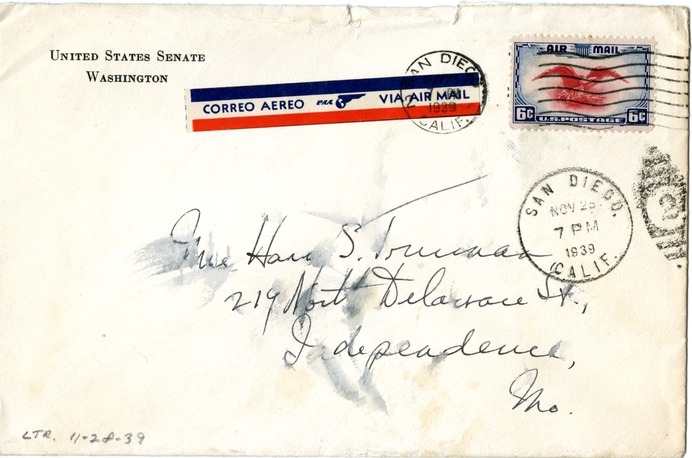 UNITED STATES SENATE
WASHINGTON
CORREO AEREO PAA VIA AIR MAIL
SAN DIEGO
1939
CALIF.
AIR MAIL
6¢ U.S. POSTAGE 6¢
SAN DIEGO,
NOV 28
7 PM
1939
CALIF.
2
Mrs Harry S. Truman
219 North Delaware St.,
Independence,
Mo.
LTR. 11-28-39